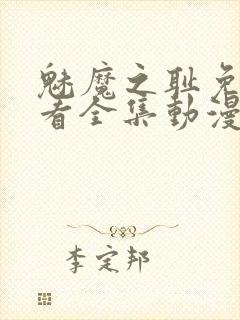 魅魔之耻免
者全集動漫
李定邦